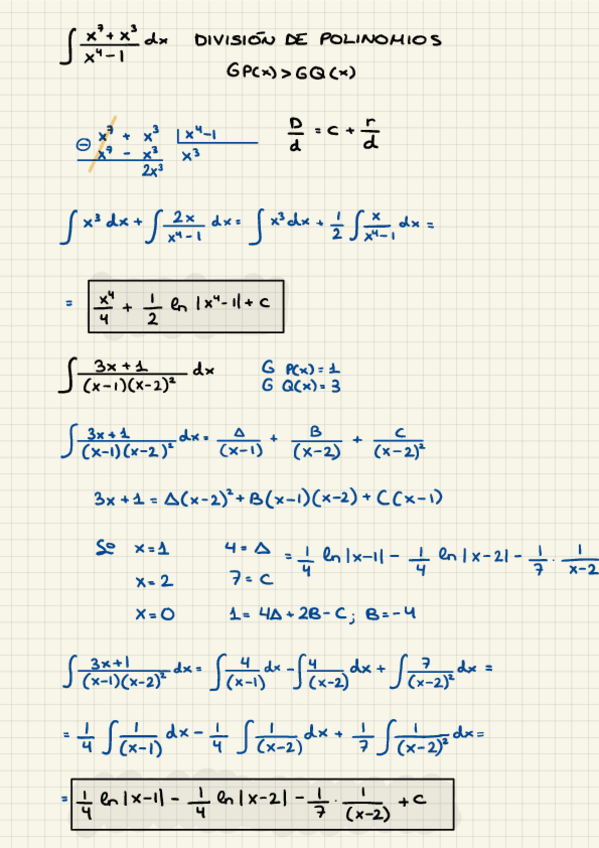 ∫ (x⁷ + x³)/(x⁴ - 1) dx DIVISIÓN DE POLINOMIOS
GP(x) > GQ(x)
⊖ x⁷ + x³ |x⁴-1 D/d = c + r/d
x⁷ - x³ x³
2x³
∫ x³ dx + ∫ 2x/(x⁴-1) dx = ∫ x³ dx + 1/2 ∫ x/(x⁴-1) dx =
= x⁴/4 + 1/2 ln |x⁴-1| + c
∫ (3x + 1)/((x-1)(x-2)²) dx G P(x) = 1
G Q(x) = 3
∫ (3x + 1)/((x-1)(x-2)²) dx = A/(x-1) + B/(x-2) + C/(x-2)²
3x + 1 = A(x-2)² + B(x-1)(x-2) + C(x-1)
Se x = 1 4 = A = 1/4 ln |x-1| - 1/4 ln |x-2| - 1/7 · 1/x-2
x = 2 7 = C
x = 0 1 = 4A + 2B - C ; B = -4
∫ (3x+1)/((x-1)(x-2)²) dx = ∫ 4/(x-1) dx - ∫ 4/(x-2) dx + ∫ 7/(x-2)² dx =
= 1/4 ∫ 1/(x-1) dx - 1/4 ∫ 1/(x-2) dx + 1/7 ∫ 1/(x-2)² dx =
= 1/4 ln |x-1| - 1/4 ln |x-2| - 1/7 · 1/(x-2) + c